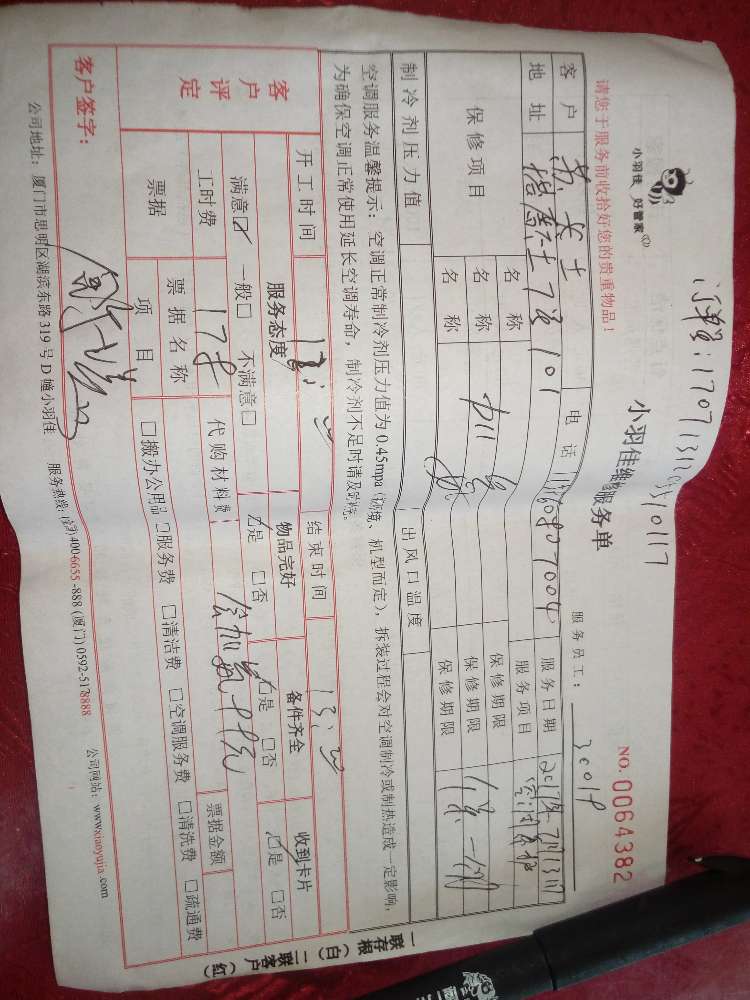 小羽佳 好管家
小羽佳维修服务单
NO.0064382
请您于服务前收拾好您的贵重物品!
服务员工:
客户
女士
电话
服务日期
地址
101
服务项目
保修项目
名称
保修期限
名称
加氟
保修期限
名称
保修期限
制冷剂压力值
出风口温度
空调服务温馨提示:空调正常制冷剂压力值为0.45mpa(环境、机型而定),拆装过程会对空调制冷或制热造成一定影响,
为确保空调正常使用延长空调寿命,制冷剂不足时请及时添加。
客户评定
开工时间
结束时间
服务态度
物品完好
备件齐全
收到卡片
满意☑ 一般□ 不满意□
☑是 □否
☑是 □否
☑是 □否
工时费
178
代购材料费
含加氟
票据
票据名称
票据金额
项目
□搬办公用品 □服务费 □清洁费 □空调服务费 □清洗费 □疏通费
客户签字:
公司地址:厦门市思明区湖滨东路319号D幢小羽佳
服务热线:(全国)400-6655-888(厦门)0592-5178888
公司网站:www.xiaoyujia.com
一联存根(白)二联客户(红)